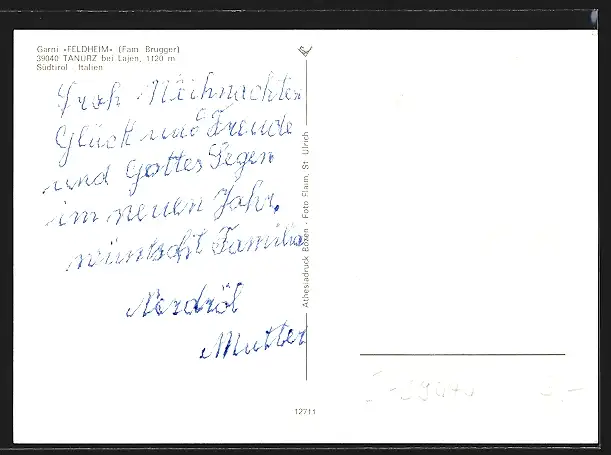 Garni «FELDHEIM» (Fam. Brugger)
39040 TANURZ bei Lajen, 1120 m
Südtirol - Italien
Froh Weihnachten
Glück und Freude
und Gottes Segen
im neuen Jahr,
wünscht Familie
Mutter
Athesiadruck Bozen - Foto Flaim, St. Ulrich
12711
I-39040